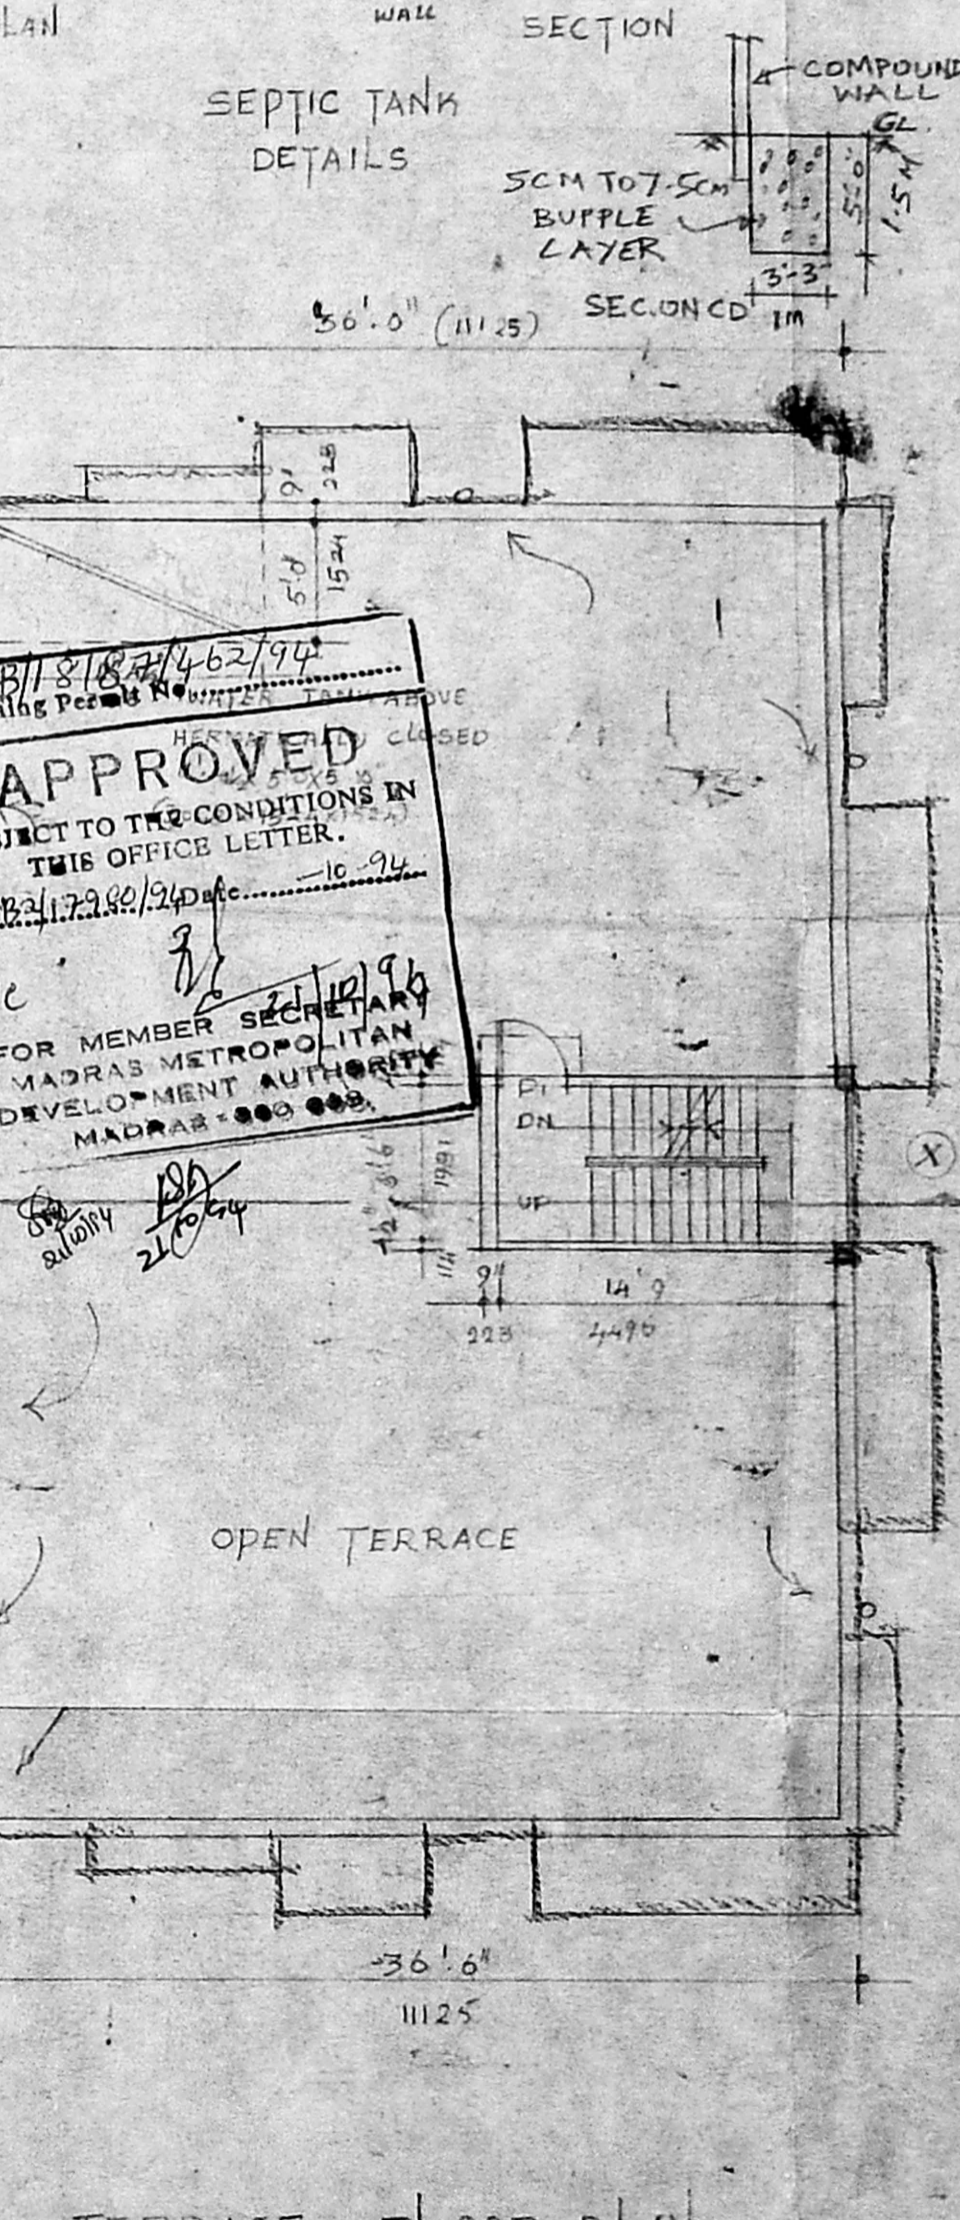 LAN
WALL
SECTION
COMPOUND
WALL
GL.
SEPTIC TANK
DETAILS
5CM TO 7.5CM
BUPPLE
LAYER
5'-0
1.5M
3'-3"
1M
SEC.ON CD
36'.0" (11125)
9"
228
5'.0
1524
B/18187/462/94
ing Permit No.
WATER TANK ABOVE
HERMATICALLY CLOSED
APPROVED
JECT TO THE CONDITIONS IN
THIS OFFICE LETTER.
Date -10-94
FOR MEMBER SECRETARY
MADRAS METROPOLITAN
DEVELOPMENT AUTHORITY
MADRAS -
21/10/94
21/10/94
D1
DN
UP
X
1991
114
9"
14'9
223
4496
OPEN TERRACE
36'.6"
11125